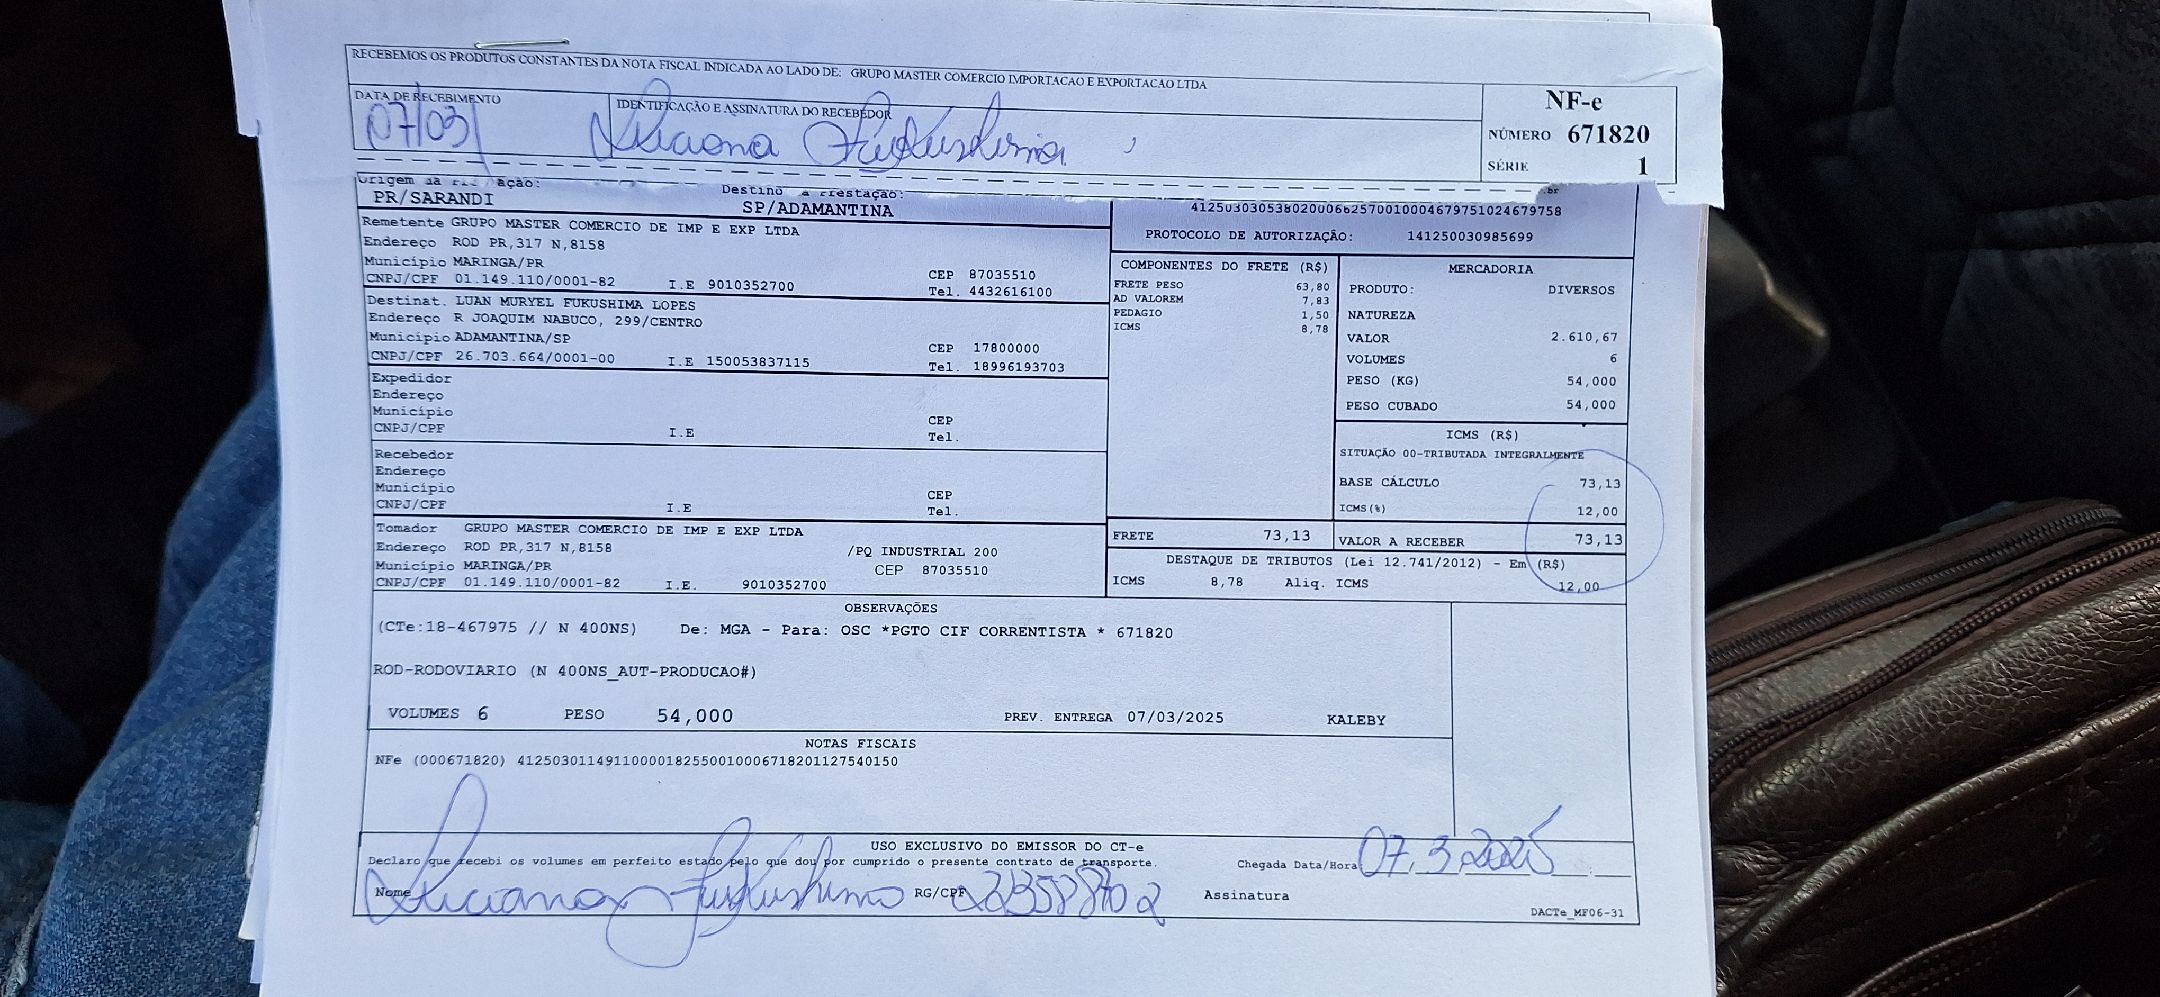 RECEBEMOS OS PRODUTOS CONSTANTES DA NOTA FISCAL INDICADA AO LADO DE: GRUPO MASTER COMERCIO IMPORTACAO E EXPORTACAO LTDA
DATA DE RECEBIMENTO
07/03/
IDENTIFICAÇÃO E ASSINATURA DO RECEBEDOR
Luciana Fukushima
NF-e
NÚMERO 671820
SÉRIE 1
PR/SARANDI
Destino
SP/ADAMANTINA
Remetente GRUPO MASTER COMERCIO DE IMP E EXP LTDA
Endereço ROD PR,317 N,8158
Município MARINGA/PR
CEP 87035510
CNPJ/CPF 01.149.110/0001-82 I.E 9010352700 Tel. 4432616100
Destinat. LUAN MURYEL FUKUSHIMA LOPES
Endereço R JOAQUIM NABUCO, 299/CENTRO
Município ADAMANTINA/SP
CEP 17800000
CNPJ/CPF 26.703.664/0001-00 I.E 150053837115 Tel. 18996193703
Expedidor
Endereço
Município
CEP
CNPJ/CPF I.E Tel.
Recebedor
Endereço
Município
CEP
CNPJ/CPF I.E Tel.
Tomador GRUPO MASTER COMERCIO DE IMP E EXP LTDA
Endereço ROD PR,317 N,8158 /PQ INDUSTRIAL 200
Município MARINGA/PR CEP 87035510
CNPJ/CPF 01.149.110/0001-82 I.E. 9010352700
PROTOCOLO DE AUTORIZAÇÃO: 141250030985699
COMPONENTES DO FRETE (R$)
FRETE PESO 63,80
AD VALOREM 7,83
PEDAGIO 1,50
ICMS 8,78
MERCADORIA
PRODUTO: DIVERSOS
NATUREZA
VALOR 2.610,67
VOLUMES 6
PESO (KG) 54,000
PESO CUBADO 54,000
ICMS (R$)
SITUAÇÃO 00-TRIBUTADA INTEGRALMENTE
BASE CÁLCULO 73,13
ICMS(%) 12,00
FRETE 73,13
VALOR A RECEBER 73,13
DESTAQUE DE TRIBUTOS (Lei 12.741/2012) - Em (R$)
ICMS 8,78 Aliq. ICMS 12,00
OBSERVAÇÕES
(CTe:18-467975 // N 400NS) De: MGA - Para: OSC *PGTO CIF CORRENTISTA * 671820
ROD-RODOVIARIO (N 400NS_AUT-PRODUCAO#)
VOLUMES 6 PESO 54,000 PREV. ENTREGA 07/03/2025 KALEBY
NOTAS FISCAIS
NFe (000671820) 41250301149110000182550010006718201127540150
USO EXCLUSIVO DO EMISSOR DO CT-e
Declaro que recebi os volumes em perfeito estado pelo que dou por cumprido o presente contrato de transporte.
Chegada Data/Hora 07.3.2025
Nome Luciana Fukushima RG/CPF
Assinatura
DACTe_MF06-31